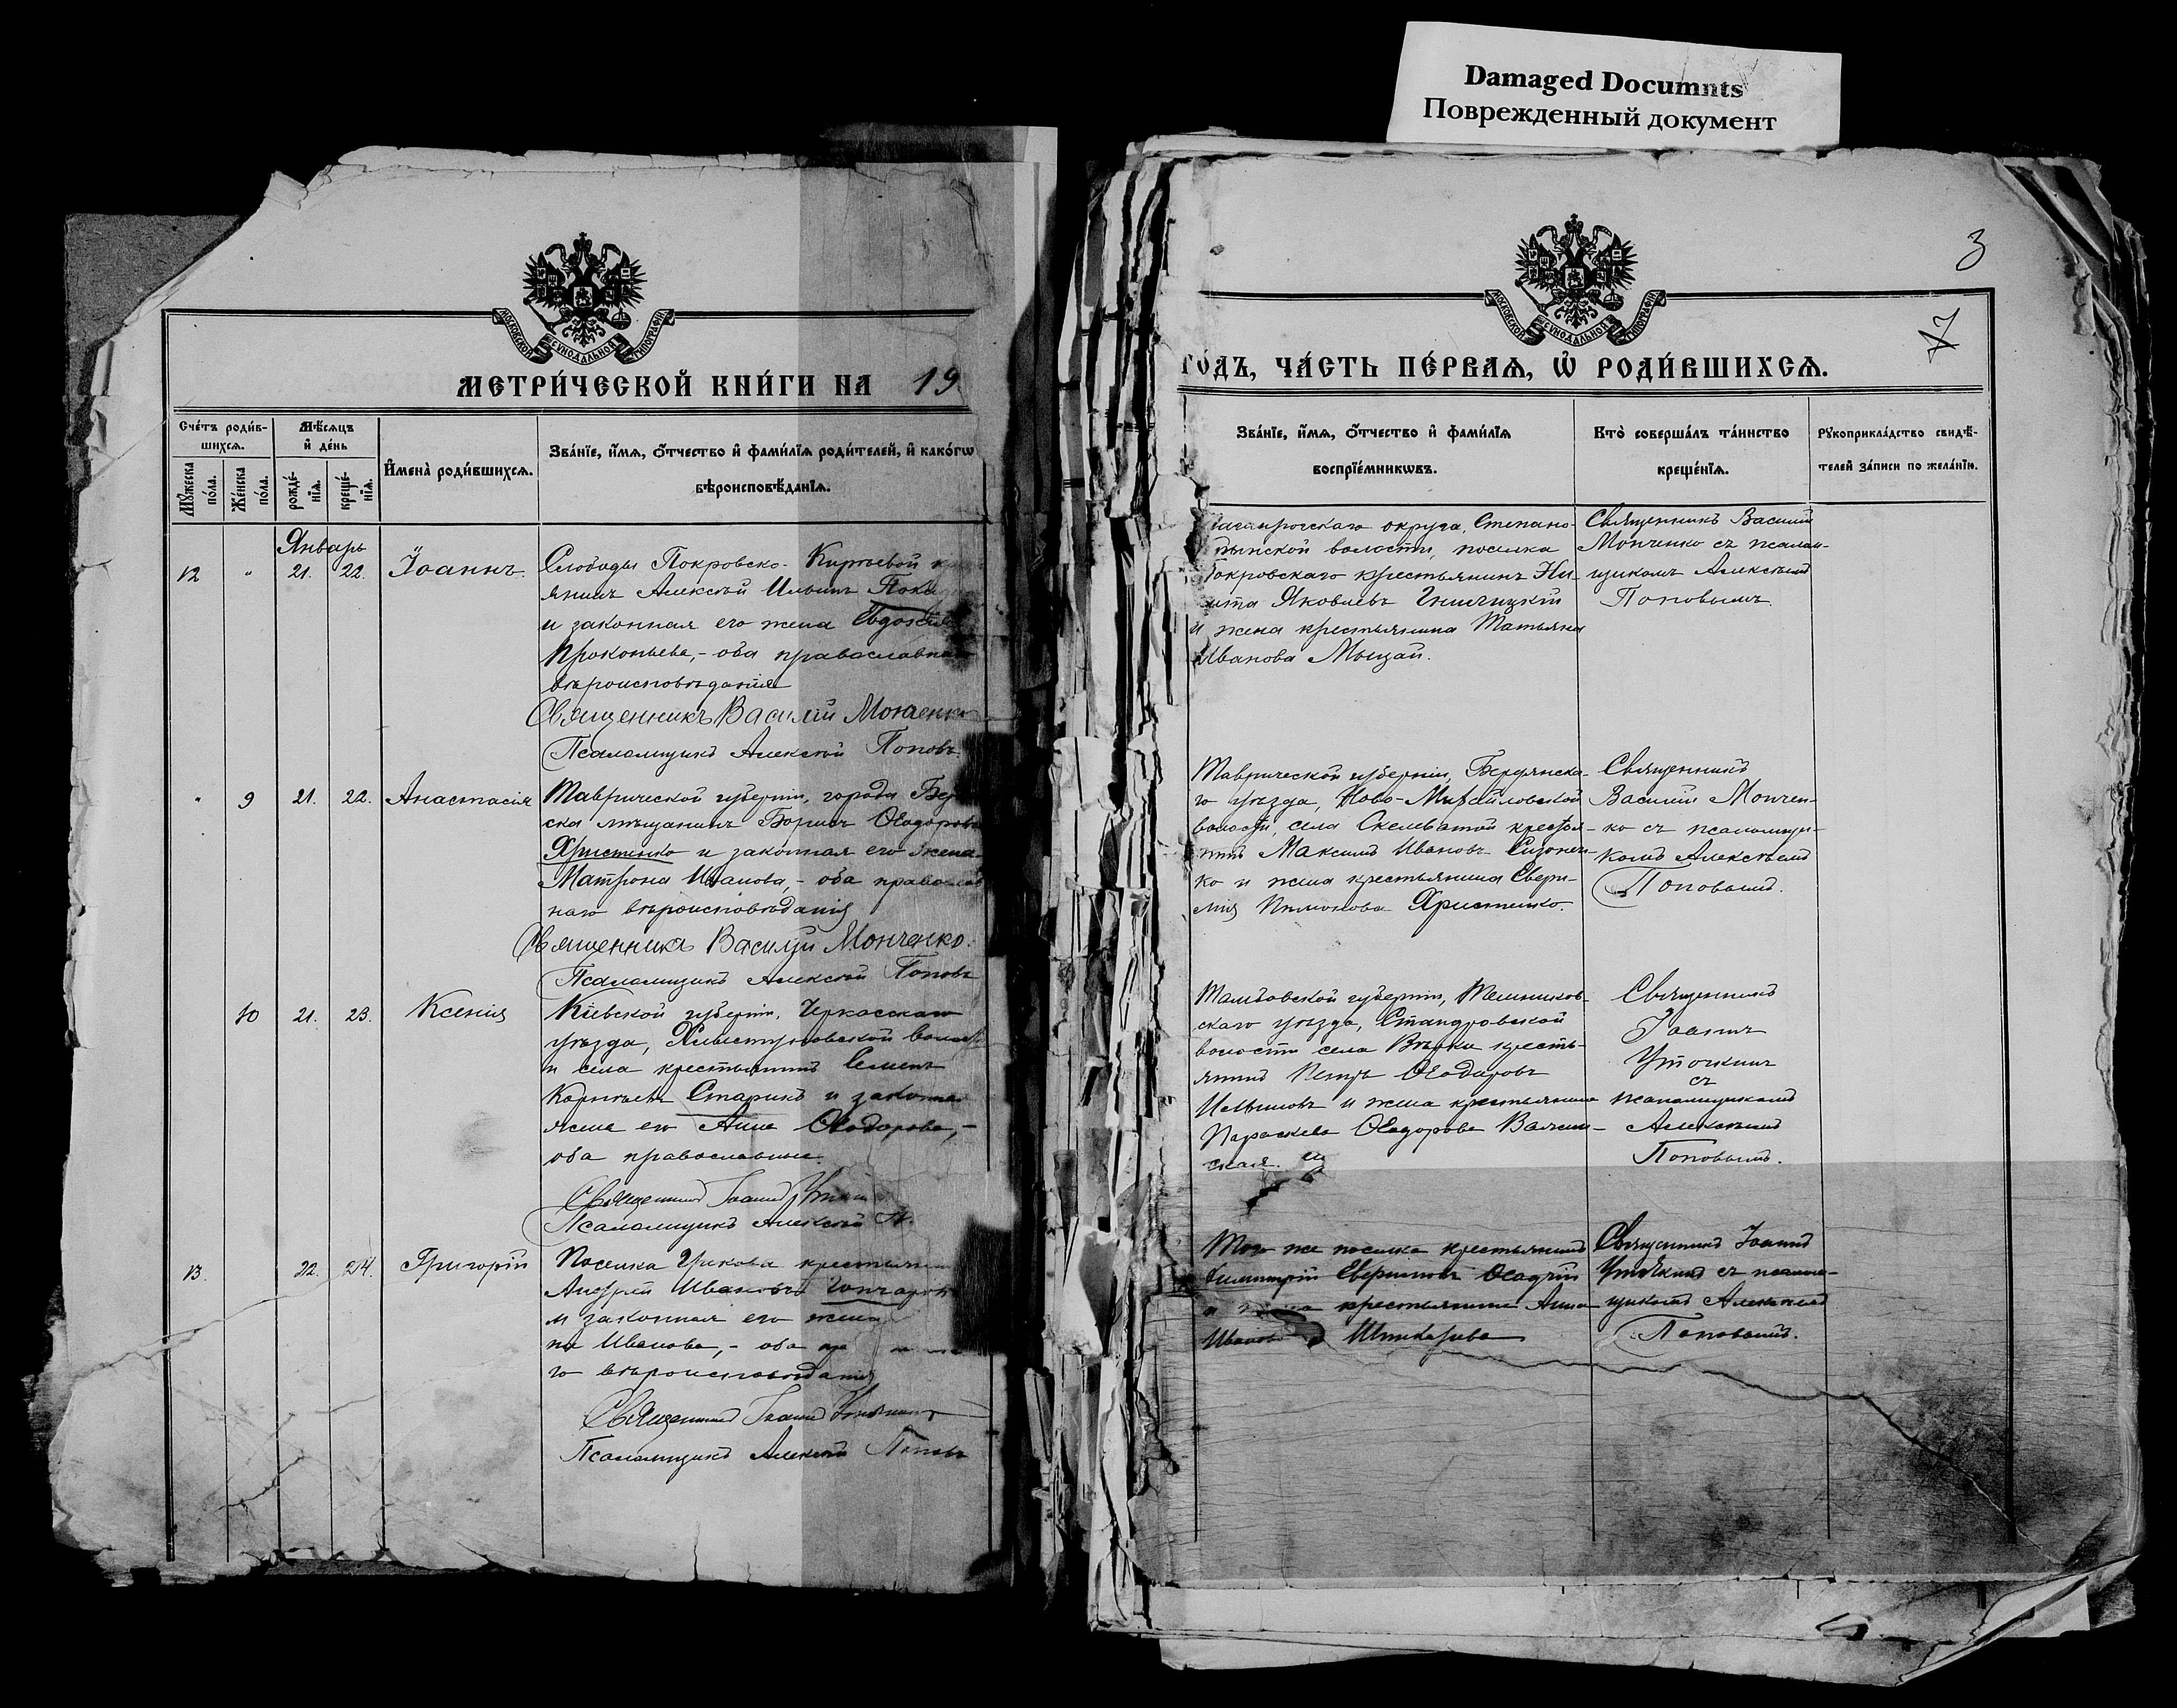 Damaged Documnts
Поврежденный документ
МОСКОВСКОЙ СѴНОДАЛЬНОЙ ТИПОГРАФІИ
МЕТРИ́ЧЕСКОЙ КНИ́ГИ НА 19
Сче́тъ роди́в-
шихсѧ.
Мѣ́сѧцъ
и҆ де́нь
Мꙋ́жеска
по́ла.
Же́нска
по́ла.
рожде́-
нїѧ.
креще́-
нїѧ.
И҆мена̀ роди́вшихсѧ.
Зва́нїе, и҆́мѧ, ѻ҆́тчество и҆ фами́лїѧ роди́телей, и҆ како́гѡ
вѣроисповѣ́данїѧ.
Январь
12 " 21. 22. Іоаннъ.
Слободы Покровско-
янинъ Алексѣй Ильинъ
и законная его жена Евдокія
Прокопьева,- оба православнаго
вѣроисповѣданія
Священникъ Василій Монченко
Псаломщикъ Алексѣй Поповъ.
" 9 21. 22. Анастасія
Таврической губерніи, города Бер
ска мѣщанинъ Борисъ Ѳеодоровъ
Христенко и законная его жена
Матрона Иванова,- оба православ
наго вѣроисповѣданія
Священникъ Василій Монченко.
Псаломщикъ Алексѣй Поповъ
10 21. 23. Ксенія
Кіевской губерніи, Черкасскаго
уѣзда, волости
и села крестьянинъ Семенъ
Старикъ и законная
жена его Анна Ѳеодорова,-
оба православные.
Священникъ Іоаннъ
Псаломщикъ Алексѣй П.
13. 22. 24. Григорій
Поселка крестьянинъ
Андрей Ивановъ Гончаров
и законная его жена
на Иванова,- оба пра
го вѣроисповѣданія
Священникъ Іоаннъ
Псаломщикъ Алексѣй Поповъ
3
7
МОСКОВСКОЙ СѴНОДАЛЬНОЙ ТИПОГРАФІИ
ГО́ДЪ, ЧА́СТЬ ПЕ́РВАѦ, Ѡ҆ РОДИ́ВШИХСѦ.
Зва́нїе, и҆́мѧ, ѻ҆́тчество и҆ фами́лїѧ
воспрїе́мникѡвъ.
Кто̀ соверша́лъ та́инство
креще́нїѧ.
Рꙋкоприкла́дство свидѣ́-
телей за́писи по жела́нїю.
Таганрогскаго округа, Степано-
волости, поселка
Покровскаго крестьянинъ Ни-
кита Яковлевъ
и жена крестьянина Татьяна
Иванова
Священникъ Василій
Монченко съ псалом-
щикомъ Алексѣемъ
Поповымъ.
Таврической губерніи, Бердянска-
го уѣзда, Ново-Михайловской
волости, села Скелеватой крестья-
нинъ Максимъ Ивановъ
ко и жена крестьянина
Христенко.
Священникъ
Василій Мончен-
ко съ псаломщи-
комъ Алексѣемъ
Поповымъ.
Тамбовской губерніи, Темников-
скаго уѣзда, Стандровской
волости села крестья-
нинъ Петръ Ѳеодоровъ
и жена крестьянина
Параскева Ѳеодорова
ская.
Священникъ
Іоаннъ
Уточкинъ
съ
псаломщикомъ
Алексѣемъ
Поповымъ.
Того же поселка крестьянинъ
Димитрій
и жена крестьянина Анна
Иванова
Священникъ Іоаннъ
Уточкинъ съ псалом-
щикомъ Алексѣемъ
Поповымъ.